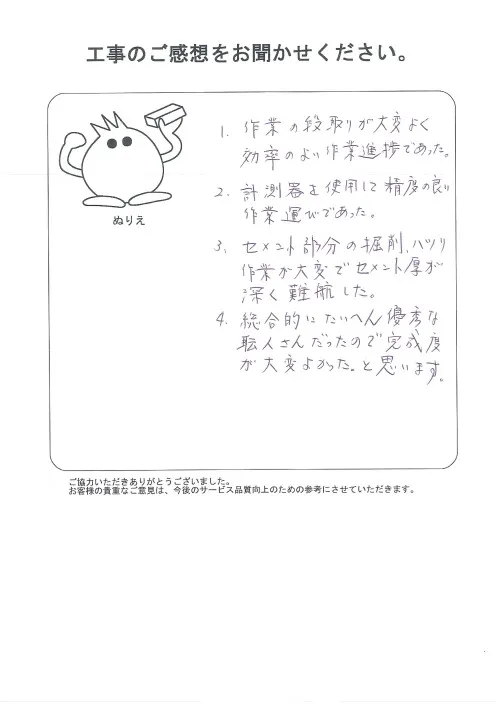 工事のご感想をお聞かせください。
ぬりえ
1. 作業の段取りが大変よく
効率のよい作業進捗であった。
2. 計測器を使用して精度の良い
作業運びであった。
3. セメント部分の掘削、ハツリ
作業が大変でセメント厚が
深く難航した。
4. 総合的にたいへん優秀な
職人さんだったので完成度
が大変よかった。と思います。
ご協力いただきありがとうございました。
お客様の貴重なご意見は、今後のサービス品質向上のための参考にさせていただきます。